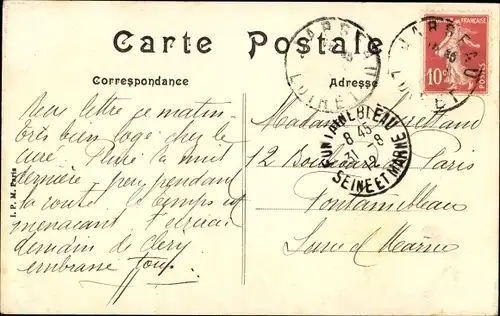 Carte Postale
Correspondance
Adresse
Reçu lettre ce matin
très bien logé chez le
curé Pluie la nuit
dernière peu pendant
la route le temps est
menaçant
demain de Cléry
embrasse tous
Madame
12 Boulevard Paris
Fontainebleau
Seine et Marne
I. P. M. Paris
LOIRET
LOIRET
FONTAINEBLEAU
8 45
31 - 8
12
SEINE ET MARNE
FRANÇAISE
10c
POSTES